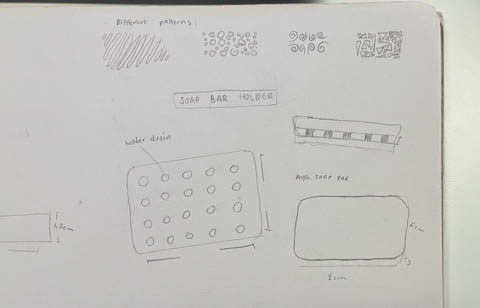 Different patterns:
SOAP BAR HOLDER
water drain
AVG. SOAP BAR
6cm
8cm